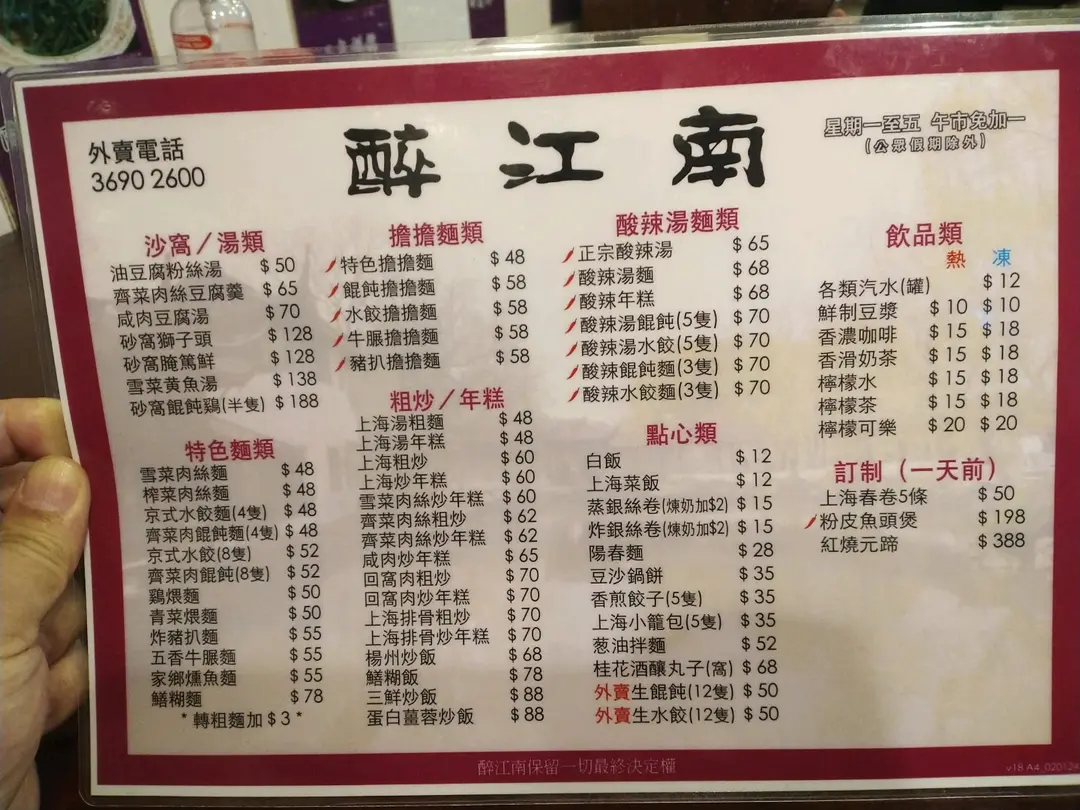 醉江南
外賣電話
3690 2600
星期一至五 午市免加一
(公眾假期除外)
沙窩／湯類
油豆腐粉絲湯 $50
齊菜肉絲豆腐羹 $65
咸肉豆腐湯 $70
砂窩獅子頭 $128
砂窩腌篤鮮 $128
雪菜黄魚湯 $138
砂窩餛飩鷄(半隻) $188
特色麵類
雪菜肉絲麵 $48
榨菜肉絲麵 $48
京式水餃麵(4隻) $48
齊菜肉餛飩麵(4隻) $48
京式水餃(8隻) $52
齊菜肉餛飩(8隻) $52
鷄煨麵 $50
青菜煨麵 $50
炸豬扒麵 $55
五香牛𦟌麵 $55
家鄉燻魚麵 $55
鱔糊麵 $78
*轉粗麵加$3*
擔擔麵類
特色擔擔麵 $48
餛飩擔擔麵 $58
水餃擔擔麵 $58
牛𦟌擔擔麵 $58
豬扒擔擔麵 $58
粗炒／年糕
上海湯粗麵 $48
上海湯年糕 $48
上海粗炒 $60
上海炒年糕 $60
雪菜肉絲炒年糕 $60
齊菜肉絲粗炒 $62
齊菜肉絲炒年糕 $62
咸肉炒年糕 $65
回窩肉粗炒 $70
回窩肉炒年糕 $70
上海排骨粗炒 $70
上海排骨炒年糕 $70
楊州炒飯 $68
鱔糊飯 $78
三鮮炒飯 $88
蛋白薑蓉炒飯 $88
酸辣湯麵類
正宗酸辣湯 $65
酸辣湯麵 $68
酸辣年糕 $68
酸辣湯餛飩(5隻) $70
酸辣湯水餃(5隻) $70
酸辣餛飩麵(3隻) $70
酸辣水餃麵(3隻) $70
點心類
白飯 $12
上海菜飯 $12
蒸銀絲卷(煉奶加$2) $15
炸銀絲卷(煉奶加$2) $15
陽春麵 $28
豆沙鍋餅 $35
香煎餃子(5隻) $35
上海小籠包(5隻) $35
葱油拌麵 $52
桂花酒釀丸子(窩) $68
外賣生餛飩(12隻) $50
外賣生水餃(12隻) $50
飲品類
熱 凍
各類汽水(罐) $12
鮮制豆漿 $10 $10
香濃咖啡 $15 $18
香滑奶茶 $15 $18
檸檬水 $15 $18
檸檬茶 $15 $18
檸檬可樂 $20 $20
訂制（一天前）
上海春卷5條 $50
粉皮魚頭煲 $198
紅燒元蹄 $388
醉江南保留一切最終決定權
v18 A4_020124